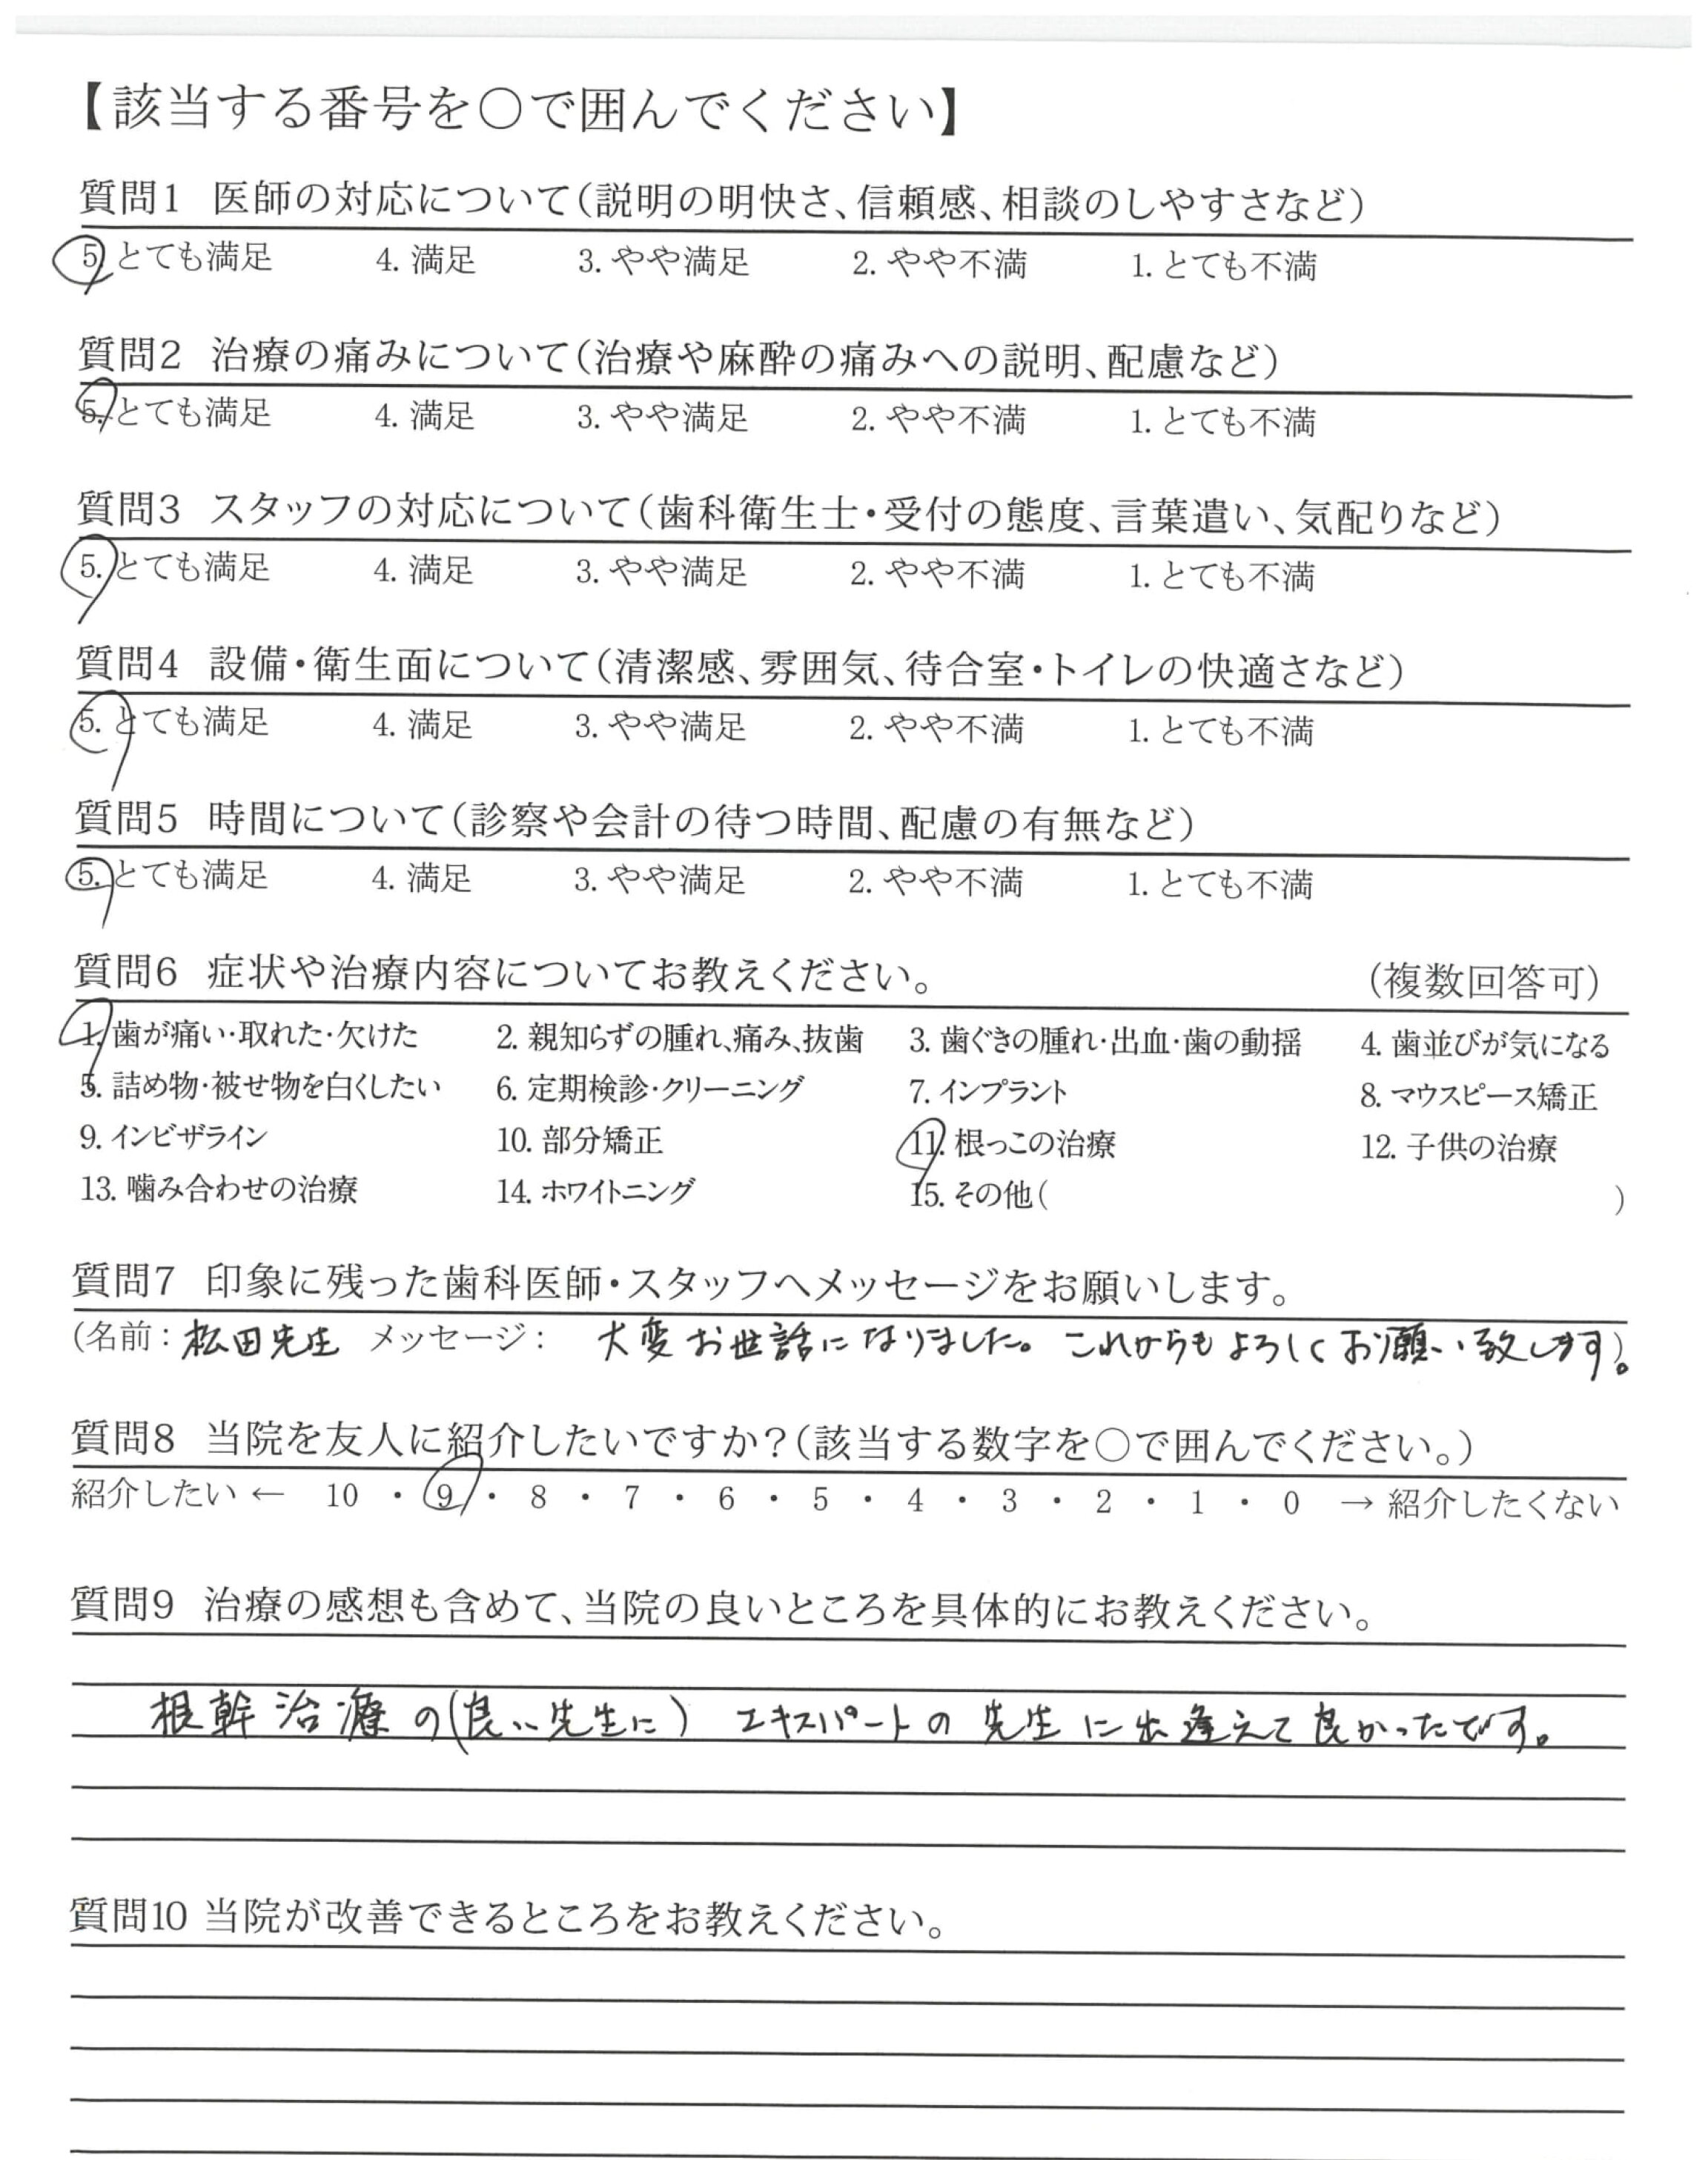 【該当する番号を〇で囲んでください】
質問1 医師の対応について(説明の明快さ、信頼感、相談のしやすさなど)
5. とても満足 4. 満足 3. やや満足 2. やや不満 1. とても不満
質問2 治療の痛みについて(治療や麻酔の痛みへの説明、配慮など)
5. とても満足 4. 満足 3. やや満足 2. やや不満 1. とても不満
質問3 スタッフの対応について(歯科衛生士・受付の態度、言葉遣い、気配りなど)
5. とても満足 4. 満足 3. やや満足 2. やや不満 1. とても不満
質問4 設備・衛生面について(清潔感、雰囲気、待合室・トイレの快適さなど)
5. とても満足 4. 満足 3. やや満足 2. やや不満 1. とても不満
質問5 時間について(診察や会計の待つ時間、配慮の有無など)
5. とても満足 4. 満足 3. やや満足 2. やや不満 1. とても不満
質問6 症状や治療内容についてお教えください。 (複数回答可)
1. 歯が痛い・取れた・欠けた 2. 親知らずの腫れ、痛み、抜歯 3. 歯ぐきの腫れ・出血・歯の動揺 4. 歯並びが気になる
5. 詰め物・被せ物を白くしたい 6. 定期検診・クリーニング 7. インプラント 8. マウスピース矯正
9. インビザライン 10. 部分矯正 11. 根っこの治療 12. 子供の治療
13. 噛み合わせの治療 14. ホワイトニング 15. その他( )
質問7 印象に残った歯科医師・スタッフへメッセージをお願いします。
(名前：松田先生 メッセージ： 大変お世話になりました。これからもよろしくお願い致します)。
質問8 当院を友人に紹介したいですか？(該当する数字を〇で囲んでください。)
紹介したい ← 10 ・ 9 ・ 8 ・ 7 ・ 6 ・ 5 ・ 4 ・ 3 ・ 2 ・ 1 ・ 0 → 紹介したくない
質問9 治療の感想も含めて、当院の良いところを具体的にお教えください。
根幹治療の(良い先生に) エキスパートの先生に出逢えて良かったです。
質問10 当院が改善できるところをお教えください。